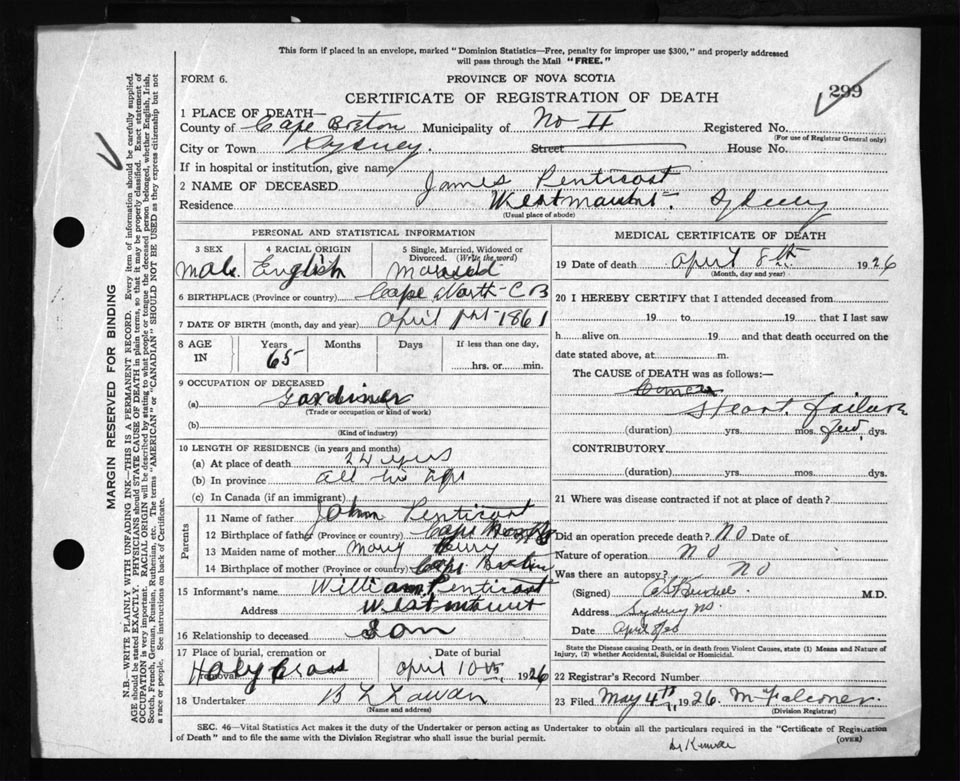 This form if placed in an envelope, marked "Dominion Statistics—Free, penalty for improper use $300," and properly addressed
will pass through the Mail "FREE."
FORM 6.
PROVINCE OF NOVA SCOTIA
299
CERTIFICATE OF REGISTRATION OF DEATH
1 PLACE OF DEATH—
County of Cape Breton Municipality of No II Registered No.
(For use of Registrar General only)
City or Town Sydney. Street House No.
If in hospital or institution, give name
2 NAME OF DECEASED James Penticost
Residence Westmount Sydney
(Usual place of abode)
PERSONAL AND STATISTICAL INFORMATION
3 SEX 4 RACIAL ORIGIN 5 Single, Married, Widowed or Divorced. (Write the word)
Male English Married
6 BIRTHPLACE (Province or country) Cape North - C B
7 DATE OF BIRTH (month, day and year) April 1st 1861
8 AGE IN Years Months Days If less than one day,
65 hrs. or min.
9 OCCUPATION OF DECEASED
(a) Gardiner
(Trade or occupation or kind of work)
(b)
(Kind of industry)
10 LENGTH OF RESIDENCE (in years and months)
(a) At place of death
(b) In province all in life
(c) In Canada (if an immigrant)
Parents
11 Name of father John Penticost
12 Birthplace of father (Province or country) Cape
13 Maiden name of mother Mary
14 Birthplace of mother (Province or country) Cape Breton
15 Informant's name William Penticost
Address Westmount
16 Relationship to deceased Son
17 Place of burial, cremation or removal Date of burial
Holy Cross April 10th, 1926
18 Undertaker
(Name and address)
MEDICAL CERTIFICATE OF DEATH
19 Date of death April 8th 1926
(Month, day and year)
20 I HEREBY CERTIFY that I attended deceased from
19 to 19 that I last saw
h alive on 19 and that death occurred on the
date stated above, at m.
The CAUSE of DEATH was as follows:
Heart failure
(duration) yrs. mos. few dys.
CONTRIBUTORY
(duration) yrs. mos. dys.
21 Where was disease contracted if not at place of death?
Did an operation precede death? NO Date of
Nature of operation NO
Was there an autopsy? NO
(Signed) M.D.
Address Sydney NS
Date April
State the Disease causing Death, or in death from Violent Causes, state (1) Means and Nature of
Injury, (2) whether Accidental, Suicidal or Homicidal.
22 Registrar's Record Number
23 Filed May 4th 1926 M Falconer
(Division Registrar)
SEC. 46—Vital Statistics Act makes it the duty of the Undertaker or person acting as Undertaker to obtain all the particulars required in the "Certificate of Registration
of Death" and to file the same with the Division Registrar who shall issue the burial permit.
(OVER)
MARGIN RESERVED FOR BINDING
N.B.—WRITE PLAINLY WITH UNFADING INK—THIS IS A PERMANENT RECORD. Every item of information should be carefully supplied.
AGE should be stated EXACTLY. PHYSICIANS should STATE CAUSE OF DEATH in plain terms, so that it may be properly classified. Exact statement of
OCCUPATION is very important. RACIAL ORIGIN will be described by stating to what people or tongue the deceased person belonged, whether English, Irish,
Scotch, French, German, Russian, Ruthenian, etc. The terms "AMERICAN" or "CANADIAN" SHOULD NOT BE USED as they express citizenship but not
a race or people. See instructions on back of Certificate.